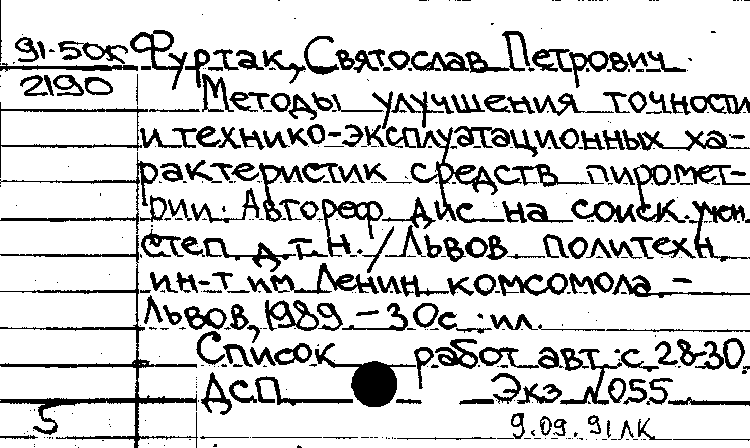 91-50к Фуртак, Святослав Петрович
2190 Методы улучшения точности
и технико-эксплуатационных ха-
рактеристик средств пиромет-
рии: Автореф дис на соиск учен
степ. д.т.н. / Львов. политехн.
ин-т им Ленин. комсомола. -
Львов, 1989. - 30с.: ил.
Список работ авт.: с. 28-30.
ДСП. Экз №055
5 9.09.91 ЛК